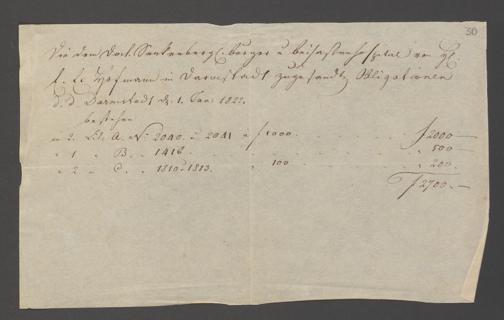 30
Die dem Doct. Senkenbergl. bürger u. beisassenhospital von H.
E. E. Hofmann in Darmstadt zugesandte Obligationen
d. d. Darmstadt d. 1. Jan. 1822.
bestehen
in 2. Lit. A. No. 2040. u 2041 a f 1000 f 2000 —
" 1 " B. " 1416 " 500 —
" 2 " C. " 1810 u 1813. " 100 " 200. —
f 2700. —